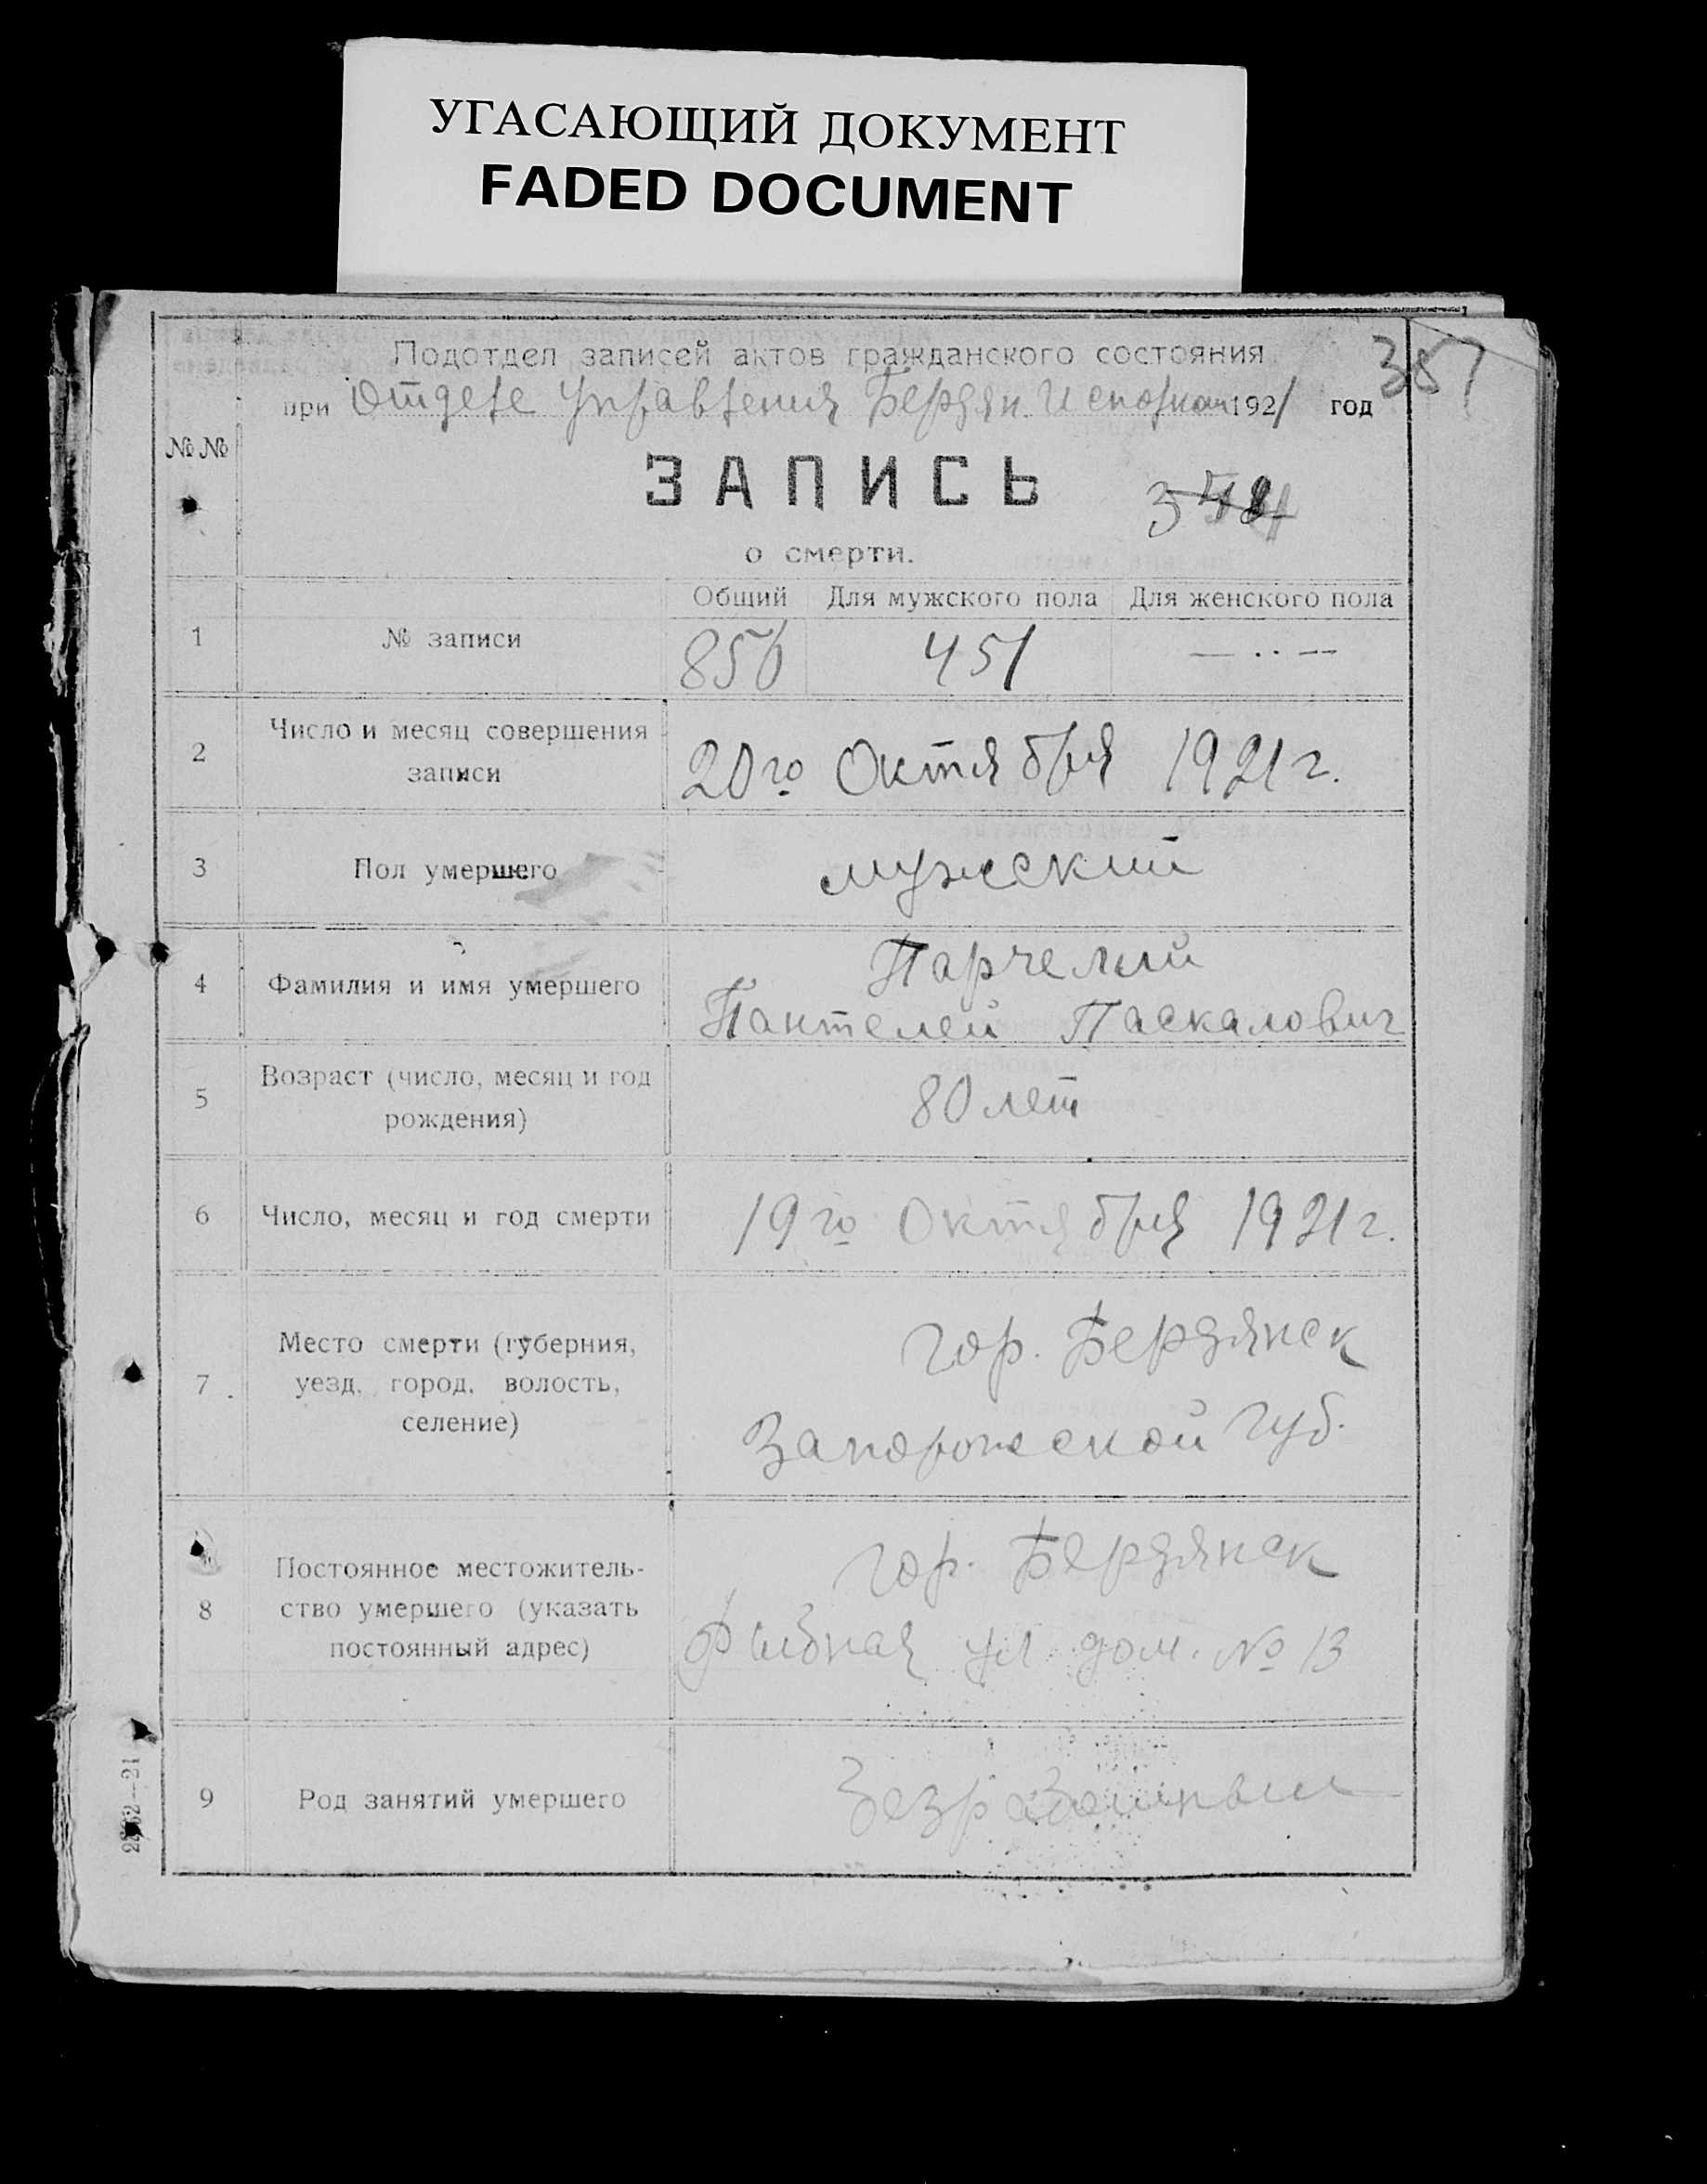 УГАСАЮЩИЙ ДОКУМЕНТ
FADED DOCUMENT
387
Подотдел записей актов гражданского состояния
при Отделе Управления Бердян. Исполком 1921 год
№№
ЗАПИСЬ
о смерти.
Общий Для мужского пола Для женского пола
1 № записи 856 451 — ·· —
2 Число и месяц совершения
записи
20го Октября 1921 г.
3 Пол умершего мужский
4 Фамилия и имя умершего
Парчелли
Пантелей Паскалович
5 Возраст (число, месяц и год
рождения)
80 лет
6 Число, месяц и год смерти 19го Октября 1921 г.
7 Место смерти (губерния,
уезд, город, волость,
селение)
гор. Бердянск
Запорожской Губ.
8 Постоянное местожитель-
ство умершего (указать
постоянный адрес)
гор. Бердянск
Рыбная ул дом. № 13
9 Род занятий умершего
безработный